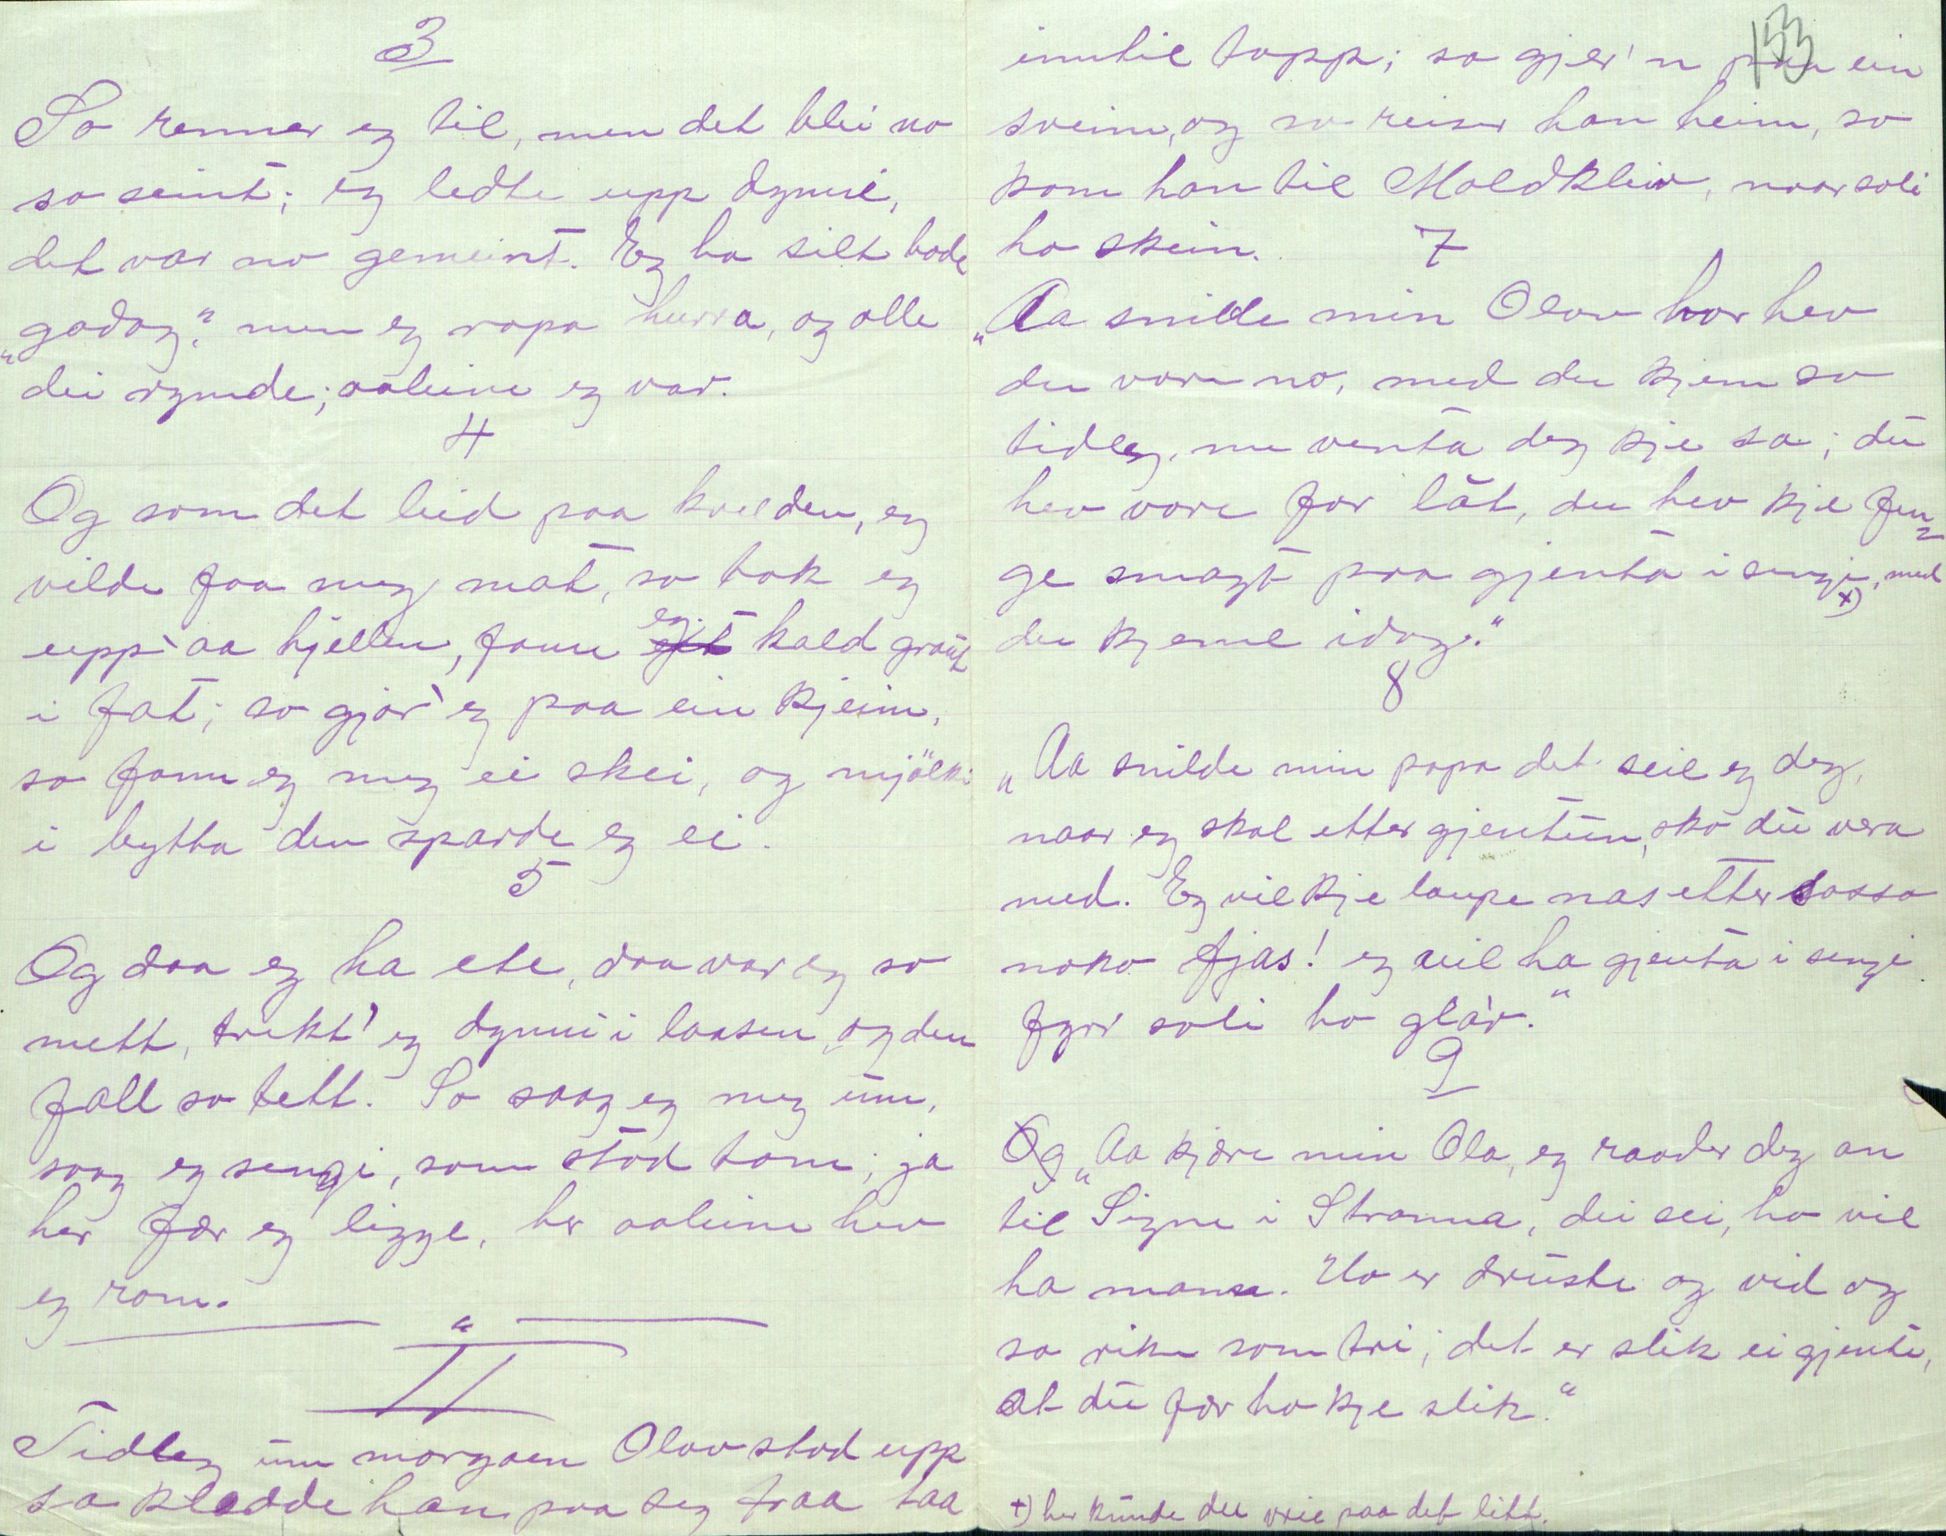 3
So renner eg til, men det blei no
so seint; eg ledte upp dynni,
det var no gemeint. Eg ha silt bode
„godag," men eg ropa hurra, og alle
dei rymde; aaleine eg var.
4
Og som det leid paa kvelden, eg
vilde faa meg mat, so tok eg
upp'aa hjellen, fann eg kald graut
i fat; so gjor' eg paa ein kjeim,
so fann eg meg ei skei, og mjölki
i bytta den sparde eg ei.
5
Og daa eg ha ete, daa var eg so
mett, trekt' eg dynni i laasen, og den
fall so tett. So saag eg meg um,
saag eg sengi, som stod tom; ja
her fær eg ligge, her aaleine hev
eg rom.
"
II
Tidleg um morgaen Olav stod upp
so kledde han paa seg fraa taa
153
inntil topp; so gjer'n paa ein
sveim, og so reiser han heim, so
kom han til Moldkleiv, naar soli
ho skein.
7
„Aa snille min Olav hor hev
du vore no, med du kjem so
tidleg, me venta deg kje so; du
hev vore for lat, du hev kje fen=
ge smagt paa gjenta i sengi, +) med
du kjeme idag."
8
„Aa snilde min papa det seie eg deg,
naar eg skal etter gjentun, sko du vera
med. Eg vil kje laupe nas etter saassa
noko fjas! eg vil ha gjenta i sengi
fyrr soli ho glar."
9
Og „Aa kjære min Ola, eg raader deg an
til Signe i Stranna, dei sei, ho vil
ha mann. Ho er druste og vid og
so rike som tri; det er slik ei gjente,
at du fær ho kje slik."
+) her kunde du vrie paa det litt.